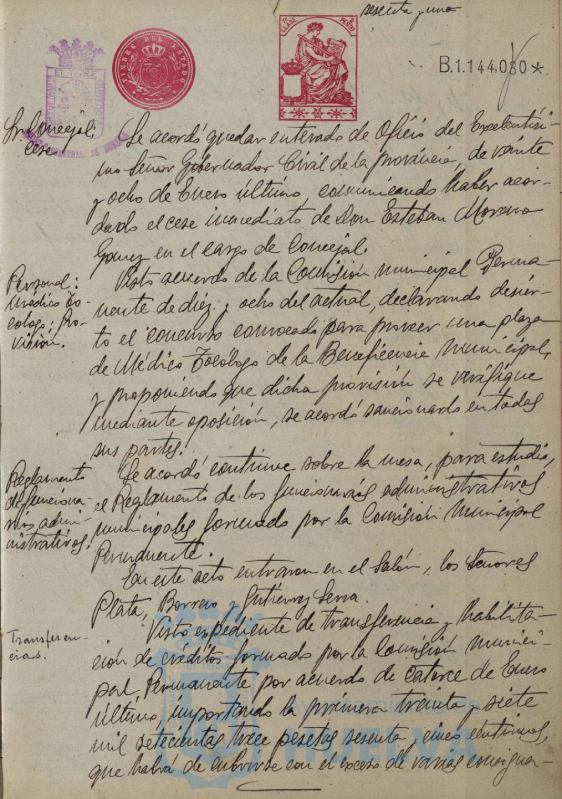 sesenta y una
TIMBRE DEL ESTADO
8ª CLASE
B.1.144.030*
Sr. Concejal:
cese.
Se acordó quedar enterado de Oficio del Excelentísi-
mo Señor Gobernador Civil de la provincia, de veinte
y ocho de Enero último, comunicando haber acor-
dado el cese inmediato de Don Esteban Moreno
Gomez en el cargo de Concejal.
Personal:
Médico To-
cólogo; Pro-
visión.
Visto acuerdo de la Comisión municipal Perma-
nente de diez y ocho del actual, declarando desier-
to el concurso convocado para proveer una plaza
de Médico Tocólogo de la Beneficencia Municipal,
y proponiendo que dicha provisión se verifique
mediante oposición, se acordó sancionarlo en todas
sus partes.
Reglamento
de funciona-
rios admi-
nistrativos.
Se acordó continue sobre la mesa, para estudio,
el Reglamento de los funcionarios administrativos
municipales formado por la Comisión Municipal
Permanente.
En este acto entraron en el Salón, los Señores
Plata, Borrero y Gutierrez Serra.
Transferen-
cias.
Visto expediente de transferencia y habilita-
ción de créditos formado por la Comisión munici-
pal, Permanente por acuerdo de catorce de Enero
último, importando la primera treinta y siete
mil setecientas trece pesetas sesenta y cinco céntimos,
que habrá de cubrirse con el exceso de varias consigna-